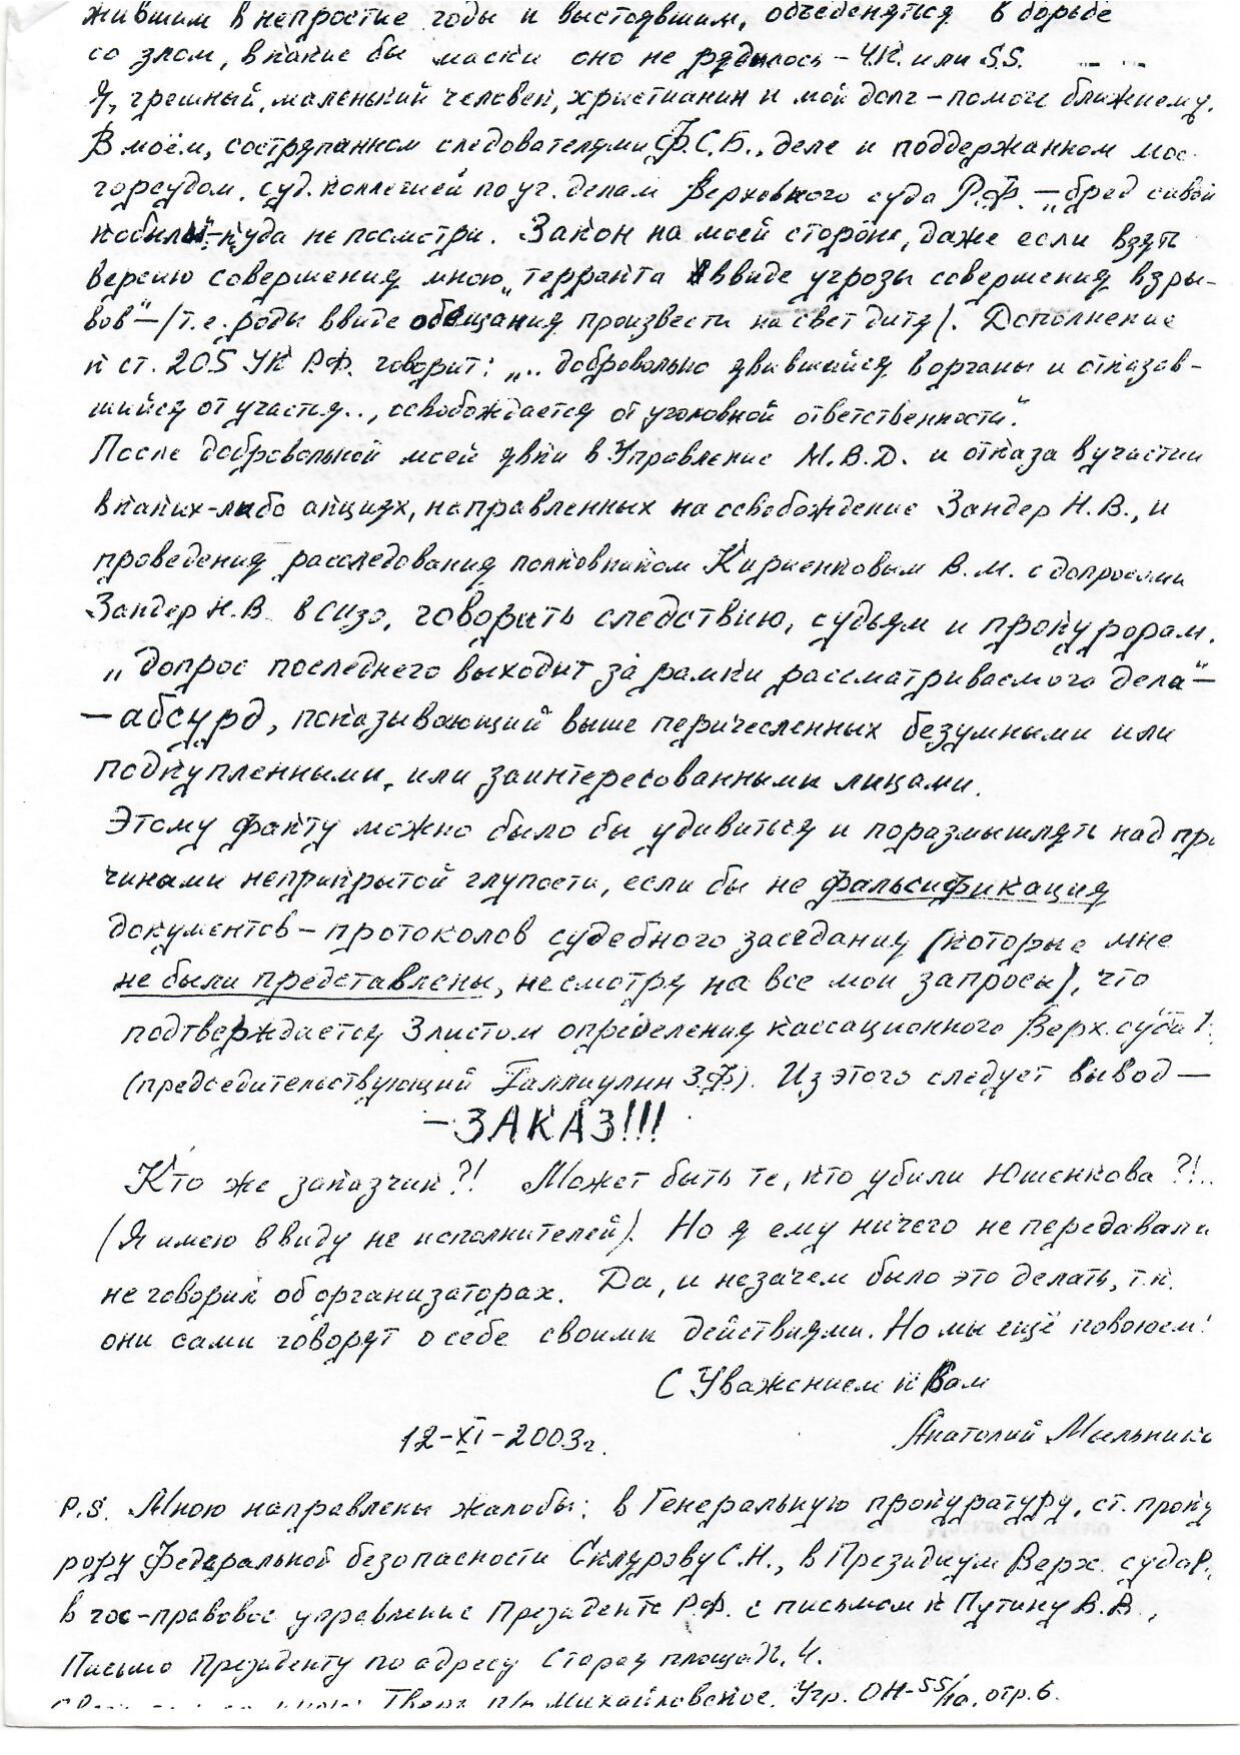 жившим в непростые годы и выстоявшим, объеденятся в борьбе
со злом, в какие бы маски оно не рядилось – Ч.К. или S.S.
Я, грешный, маленький человек, христианин и мой долг – помочь ближнему.
В моём, состряпанном следователями Ф.С.Б., деле и поддержанном мос-
горсудом, суд. коллегией по уг. делам Верховного суда Р.Ф. – „бред сивой
кобылы" – куда не посмотри. Закон на моей стороне, даже если взять
версию совершения мною „терракта в виде угрозы совершения взры-
вов" – /т.е. роды ввиде обещания произвести на свет дитя/. Дополнение
к ст. 205 УК Р.Ф. говорит: „.. добровольно явившийся в органы и отказав-
шийся от участия.., освобождается от уголовной ответственности".
После добровольной моей явки в Управление М.В.Д. и отказа в участии
в каких-либо акциях, направленных на освобождение Зандер Н.В., и
проведения расследования полковником Кириенковым В.М. с допросами
Зандер Н.В. в сизо, говорить следствию, судьям и прокурорам.
„допрос последнего выходит за рамки рассматриваемого дела" –
– абсурд, показывающий выше перичесленных безумными или
подкупленными, или заинтересованными лицами.
Этому факту можно было бы удивиться и поразмышлять над при
чинами неприкрытой глупости, если бы не фальсификация
документов – протоколов судебного заседания (которые мне
не были представлены, несмотря на все мои запросы), что
подтверждается 3 листом определения кассационного Верх. суда
(председательствующий Галлиулин З.Ф.). Из этого следует вывод –
– ЗАКАЗ!!!
Кто же заказчик?! Может быть те, кто убили Юшенкова?!..
(Я имею ввиду не исполнителей). Но я ему ничего не передавал и
не говорил об организаторах. Да, и незачем было это делать, т.к.
они сами говорят о себе своими действиями. Но мы ещё повоюем!
С Уважением к Вам
12-XI-2003г. Анатолий Мыльнико
P.S. Мною направлены жалобы: в Генеральную прокуратуру, ст. проку
рору Федеральной безопасности Склярову С.Н., в Президиум Верх. суда Р.
в гос-правовое управление Президента Р.Ф. с письмом к Путину В.В.,
Письмо Президенту по адресу Старая площадь, 4.
Тверь п/о Михайловское. Учр. ОН-55/10, отр. 6.